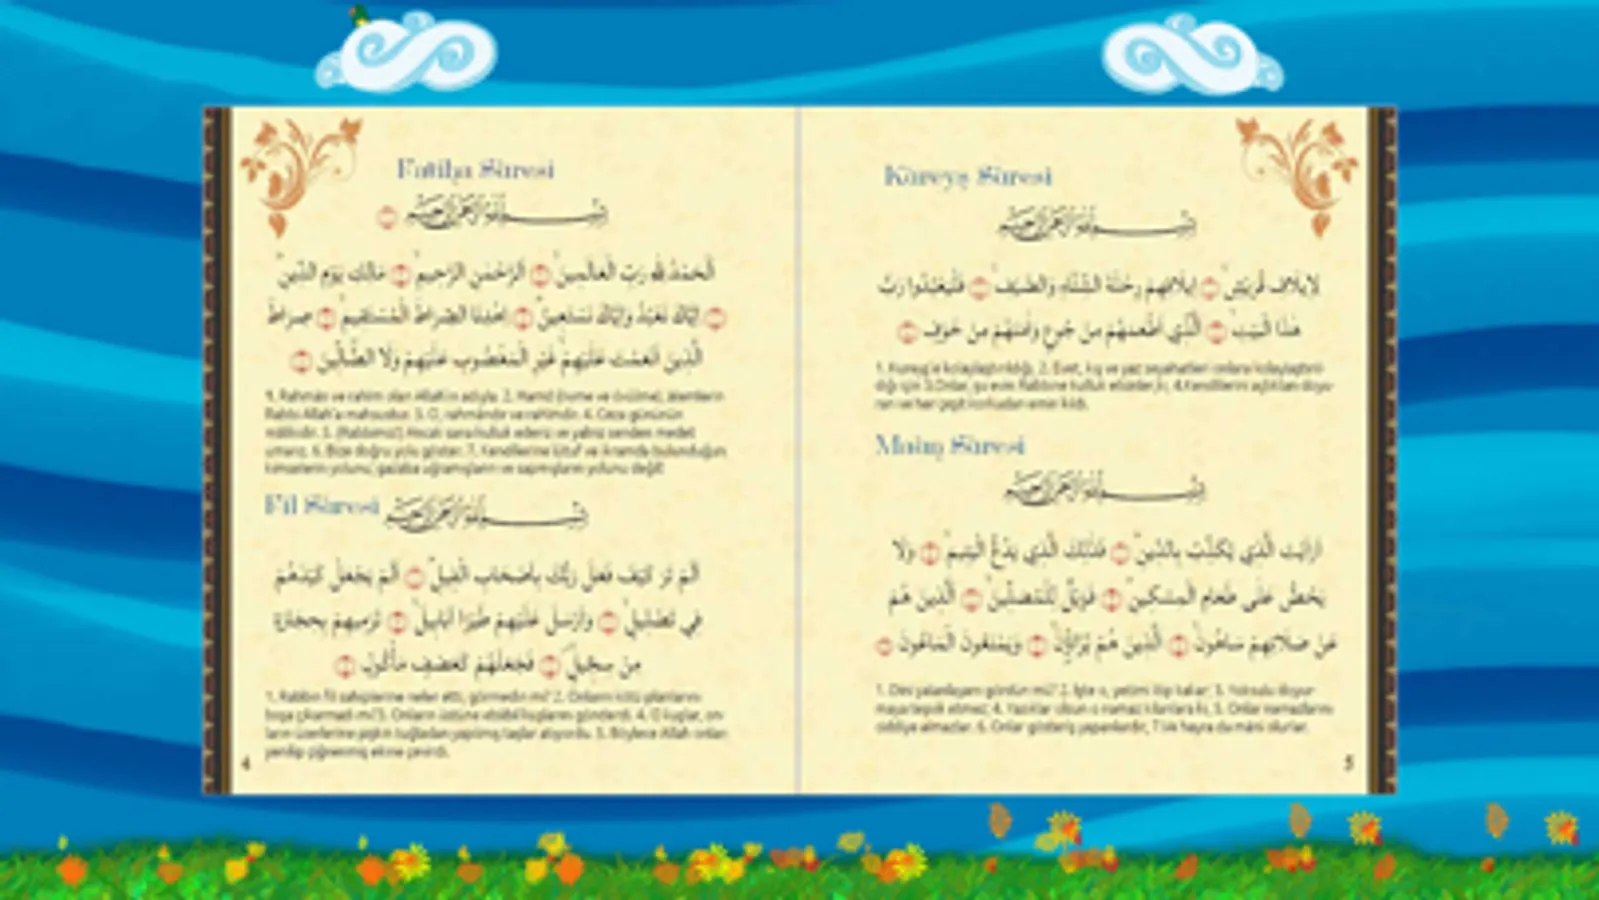 Fatiha Sûresi
بِسْمِ اللّٰهِ الرَّحْمٰنِ الرَّحِيمِ
اَلْحَمْدُ لِلّٰهِ رَبِّ الْعَالَمِينَ اَلرَّحْمٰنِ الرَّحِيمِ مَالِكِ يَوْمِ الدِّينِ
اِيَّاكَ نَعْبُدُ وَاِيَّاكَ نَسْتَعِينُ اِهْدِنَا الصِّرَاطَ الْمُسْتَقِيمَ صِرَاطَ
الَّذِينَ اَنْعَمْتَ عَلَيْهِمْ غَيْرِ الْمَغْضُوبِ عَلَيْهِمْ وَلَا الضَّالِّينَ
1. Rahmân ve rahîm olan Allah'ın adıyla. 2. Hamd (övme ve övülme), âlemlerin
Rabbi Allah'a mahsustur. 3. O, rahmândır ve rahîmdir. 4. Ceza gününün
mâlikidir. 5. (Rabbimiz!) Ancak sana kulluk ederiz ve yalnız senden medet
umarız. 6. Bize doğru yolu göster. 7. Kendilerine lütuf ve ikramda bulunduğun
kimselerin yolunu; gazaba uğramışların ve sapmışların yolunu değil!
Fil Sûresi
بِسْمِ اللّٰهِ الرَّحْمٰنِ الرَّحِيمِ
اَلَمْ تَرَ كَيْفَ فَعَلَ رَبُّكَ بِاَصْحَابِ الْفِيلِ اَلَمْ يَجْعَلْ كَيْدَهُمْ
فِي تَضْلِيلٍ وَاَرْسَلَ عَلَيْهِمْ طَيْرًا اَبَابِيلَ تَرْمِيهِمْ بِحِجَارَةٍ
مِنْ سِجِّيلٍ فَجَعَلَهُمْ كَعَصْفٍ مَأْكُولٍ
1. Rabbin fil sahiplerine neler etti, görmedin mi? 2. Onların kötü planlarını
boşa çıkarmadı mı? 3. Onların üstüne ebâbil kuşlarını gönderdi. 4. O kuşlar, on-
ların üzerlerine pişkin tuğladan yapılmış taşlar atıyordu. 5. Böylece Allah onları
yenilip çiğnenmiş ekine çevirdi.
4
Kureyş Sûresi
بِسْمِ اللّٰهِ الرَّحْمٰنِ الرَّحِيمِ
لِاِيلَافِ قُرَيْشٍ اِيلَافِهِمْ رِحْلَةَ الشِّتَاءِ وَالصَّيْفِ فَلْيَعْبُدُوا رَبَّ
هٰذَا الْبَيْتِ اَلَّذِي اَطْعَمَهُمْ مِنْ جُوعٍ وَاٰمَنَهُمْ مِنْ خَوْفٍ
1. Kureyş'e kolaylaştırıldığı, 2. Evet, kış ve yaz seyahatleri onlara kolaylaştırıl-
dığı için 3. Onlar, şu evin Rabbine kulluk etsinler ki, 4. Kendilerini açlıktan doyu-
ran ve her çeşit korkudan emin kıldı.
Maûn Sûresi
بِسْمِ اللّٰهِ الرَّحْمٰنِ الرَّحِيمِ
اَرَاَيْتَ الَّذِي يُكَذِّبُ بِالدِّينِ فَذٰلِكَ الَّذِي يَدُعُّ الْيَتِيمَ وَلَا
يَحُضُّ عَلٰى طَعَامِ الْمِسْكِينِ فَوَيْلٌ لِلْمُصَلِّينَ اَلَّذِينَ هُمْ
عَنْ صَلَاتِهِمْ سَاهُونَ اَلَّذِينَ هُمْ يُرَاؤُنَ وَيَمْنَعُونَ الْمَاعُونَ
1. Dini yalanlayanı gördün mü? 2. İşte o, yetimi itip kakar; 3. Yoksulu doyur-
maya teşvik etmez; 4. Yazıklar olsun o namaz kılanlara ki, 5. Onlar namazlarını
ciddiye almazlar. 6. Onlar gösteriş yapanlardır, 7. Ve hayra da mâni olurlar.
5